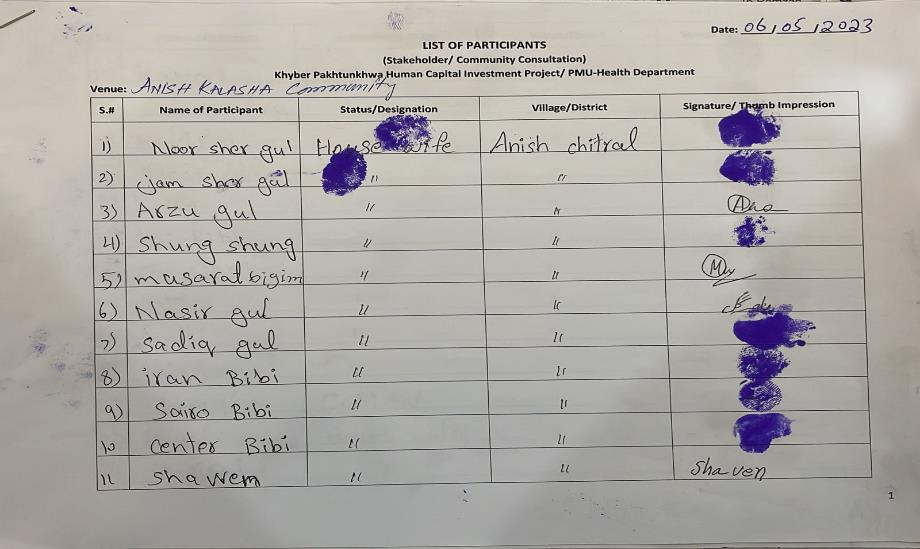 Date: 06/05/2023
LIST OF PARTICIPANTS
(Stakeholder/ Community Consultation)
Khyber Pakhtunkhwa Human Capital Investment Project/ PMU-Health Department
Venue: ANISH KALASHA Community
S.# Name of Participant Status/Designation Village/District Signature/ Thumb Impression
1) Noor sher gul House wife Anish chitral
2) jam sher gul " "
3) Arzu gul " "
4) Shung shung " "
5) masarat bigim " "
6) Nasir gul " "
7) Sadiq gul " "
8) iran Bibi " "
9) Sairo Bibi " "
10 center Bibi " "
11 Shawem " " Shaven
1